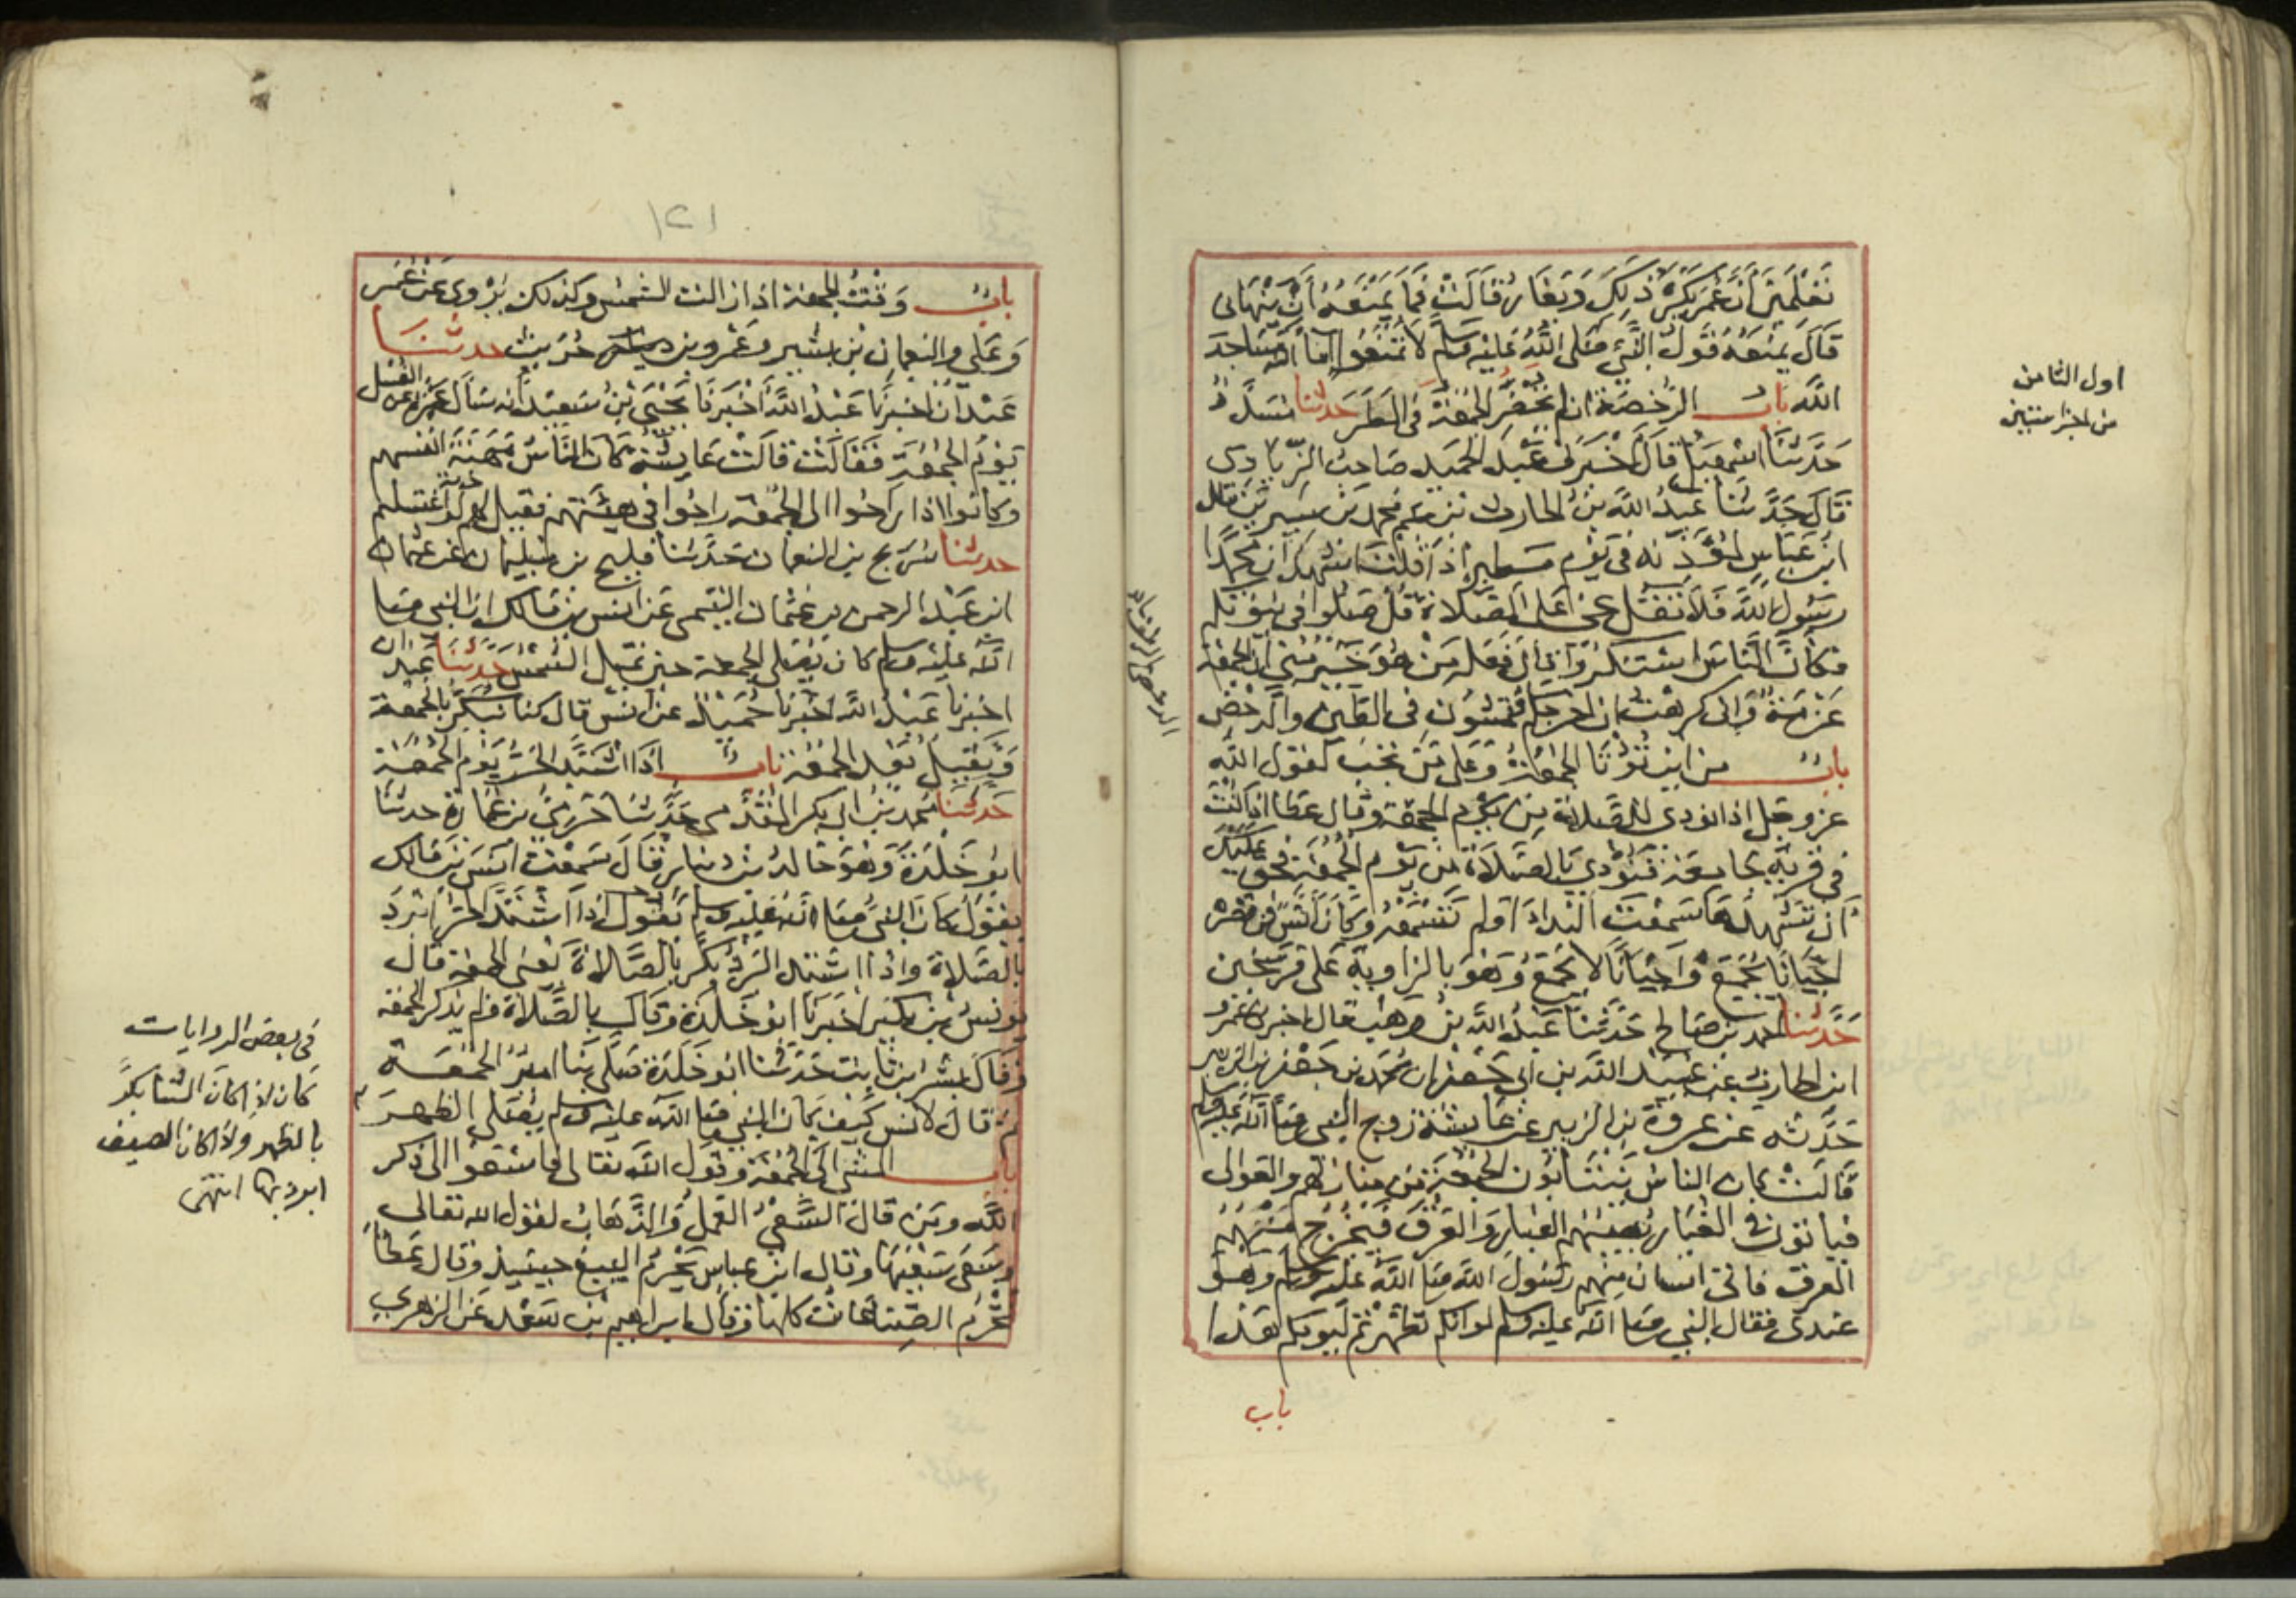 تَعْلَمِينَ أَنَّ عُمَرَ يَكْرَهُ ذَلِكَ وَيَغَارُ قَالَتْ فَمَا يَمْنَعُهُ أَنْ يَنْهَانِى
قَالَ يَمْنَعُهُ قَوْلُ النَّبِيِّ صَلَّى اللَّهُ عَلَيْهِ وَسَلَّمَ لَا تَمْنَعُوا إِمَاءَ اللَّهِ مَسَاجِدَ
اللَّهِ باب الرُّخصَة ان لم يَحْضُرِ الجُمُعَةَ فى المَطَرِ حَدَّثنا مُسَدَّدٌ
حَدَّثَنَا اسْمعِيلُ قَالَ أَخْبَرَنى عَبْدُ الحَمِيدِ صَاحِبُ الزِّيَادِى
قَالَ حَدَّثَنَا عَبْدُ اللَّهِ بْنُ الحارث بن عم محمد بن سِيرِينَ قال
ابْنُ عَبَّاسٍ لمُؤَذِّنِهِ فى يَوْمٍ مَطِيرٍ إِذَا قُلْتَ أَشهد أن مُحَمَّدًا
رَسُولُ اللَّهِ فَلَا تَقُلْ حَىَّ عَلَى الصَّلَاةِ قُلْ صَلُّوا فى بُيُوتِكُم
فَكَأَنَّ النَّاسَ اسْتَنْكَرُوا قال فَعَلَهُ مَنْ هُوَ خَيْرٌ مِنّى ان الجُمُعَةَ
عَزْمَةٌ وَانى كرهْتُ ان أحرجكم فتمشُونَ فى الطِّين والدَّحْضِ
باب من اين تُؤْتَا الجُمُعَةُ وَعَلَى مَنْ تَجِبُ لقول اللَّهِ
عز وجل اذا نودى للصلاة من يَوْمِ الجمعة وقال عطا اذا كُنْتَ
فى قريةٍ جامعة فنُودِىَ بالصَّلَاةِ من يَوْمِ الجُمُعَةِ فحَق عَلَيْكَ
أن تَشْهَدَهَا سَمِعْتَ النِّدَاءَ أو لم تَسْمَعْهُ وَكَانَ أَنَسٌ فى قَصْرِهِ
احْيَانًا يُجَمِّعُ وَاحْيَانًا لا يُجَمِّعُ وَهْوَ بالزاوية عَلَى فَرْسَخَين
حَدَّثنا احمد بن صالح حَدَّثَنَا عَبْدُ اللَّهِ بْنُ وهب قال اخبرنى عَمْرو
ابن الحارث عن عبيد الله بن أبى جَعفر ان محمد بن جَعْفَر بن الزبير
حَدَّثه عن عروة بن الزبير عن عائشة زوج النبى صَلَّى اللَّه عليه وسلم
قَالَتْ كان الناس يَنْتَابُونَ الجُمعَةَ من منازلهم والعَوالى
فيأتون فى الغُبَارِ يُصيبُهم الغبار والعَرَق فَيَخْرُجُ مِنْهُمُ
العرق فاتى انسان منهم رَسُولَ اللَّهِ صَلَّى اللَّهُ عليه وسلم وهو
عندى فقال النبي صلى الله عليه وسلم لو انكم تطهرتم ليومكم هَذَا
باب
اول الثامن
من
باب وَقْتُ الجمعة اذا زالت الشمس وكذلك يُرْوَى عَنْ عُمَر
وَعَلى والنعمان بن بَشير وعَمْرو بن حُرَيث حدثنا
عَبْدَانُ اخبرنا عَبْدُ اللَّهِ أَخْبَرَنَا يَحْيَى بْنُ سَعِيدٍ أنه سَأَلَ عَمْرَةَ عن الغُسل
يَوْمَ الجُمُعَةِ فَقَالَتْ قالَتْ عَائِشَةُ كَانَ النَّاسُ مَهَنَةَ أنفسهم
وكانوا اذا رَاحُوا الى الجمعة رَاحُوا فى هَيْئَتِهِم فقيل لهم لَوِ اغتسلتم
حدثنا سُرَيج بن النعمان حَدَّثَنَا فليح بن سُلَيمان عَن عثمان
ابن عَبْد الرحمن بن عُثمان التَّيْمى عَن انس بن مَالك ان النبى صلى
الله عَلَيْهِ وسلم كان يُصَلى الجمعة حين تميل الشمس حَدَّثَنَا عَبْدان
اخبرنا عَبْدُ اللَّه اخبرنا حُمَيْدٌ عن انس قال كنا نُبَكِّرُ بالجمعة
وَنَقِيلُ بَعْدَ الجمعة باب اذَا اشْتَدَّ الحَرُّ يَوْمَ الجُمُعَة
حَدثَنا محمد بن ابى بكر المُقَدَّمى حَدَّثَنَا حَرَمِىُّ بن عُمَارَةَ حدثنا
ابُو خَلْدَةَ وَهْوَ خالدُ بْنُ دينار قَالَ سَمِعْتُ انَسَ بن مَالك
يقول كان النبى صلى الله عليه وسلم يَقُولُ اذَا اشْتَدَّ الحَرُّ ابْرَدَ
بالصَّلاة واذا اشتد البَرْدُ بَكَّرَ بالصَّلاةِ يَعنى الجمعة قال
يونس بن بكير اخبَرَنَا ابُو خَلْدَة وَقَالَ بالصَّلاة ولم يَذكر الجمعة
وقَالَ بشر ابن ثابت حَدَّثنا ابُو خَلْدَة صَلَّى بنا اميرٌ الجُمُعَة
ثم قال لانس كَيْفَ كان النبي صلى الله عليه وسلم يُصَلى الظهر
باب المشى الَى الجُمُعَة وقول اللَّه تعالى فاسْعَوْا الى ذكر
اللَّه ومَن قالَ السَّعْىُ العَمَلُ وَالذَّهَابُ لقول الله تعالى
وسَعَى سَعْيَهَا وقال ابن عباس يَحْرُمُ البيع حينئيذ وقال عَطَاءٌ
تَحْرُمُ الصِّنَاعَاتُ كلها وقَالَ ابراهيم بْنُ سَعْد عَن الزهرى
فى بعض الروايات
كان اذا كان الشتا بكَّر
بالظهر واذا كان الصيف
ابرد بها انتهى